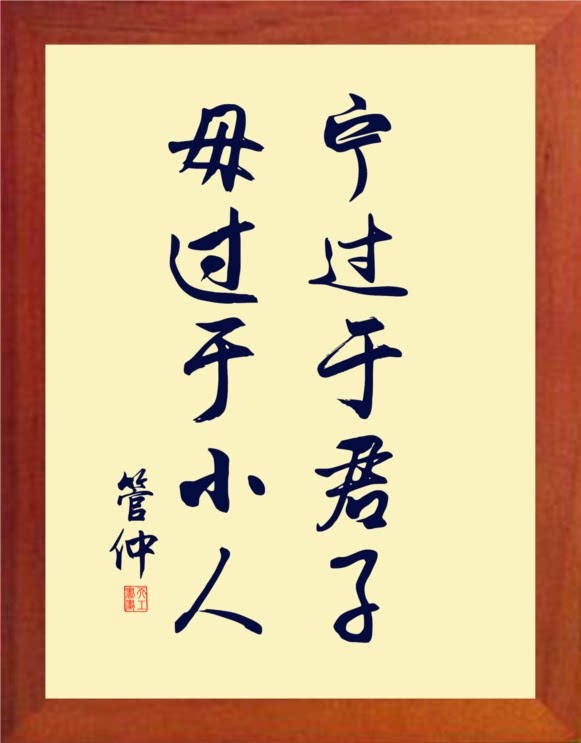 宁过于君子
毋过于小人
管仲